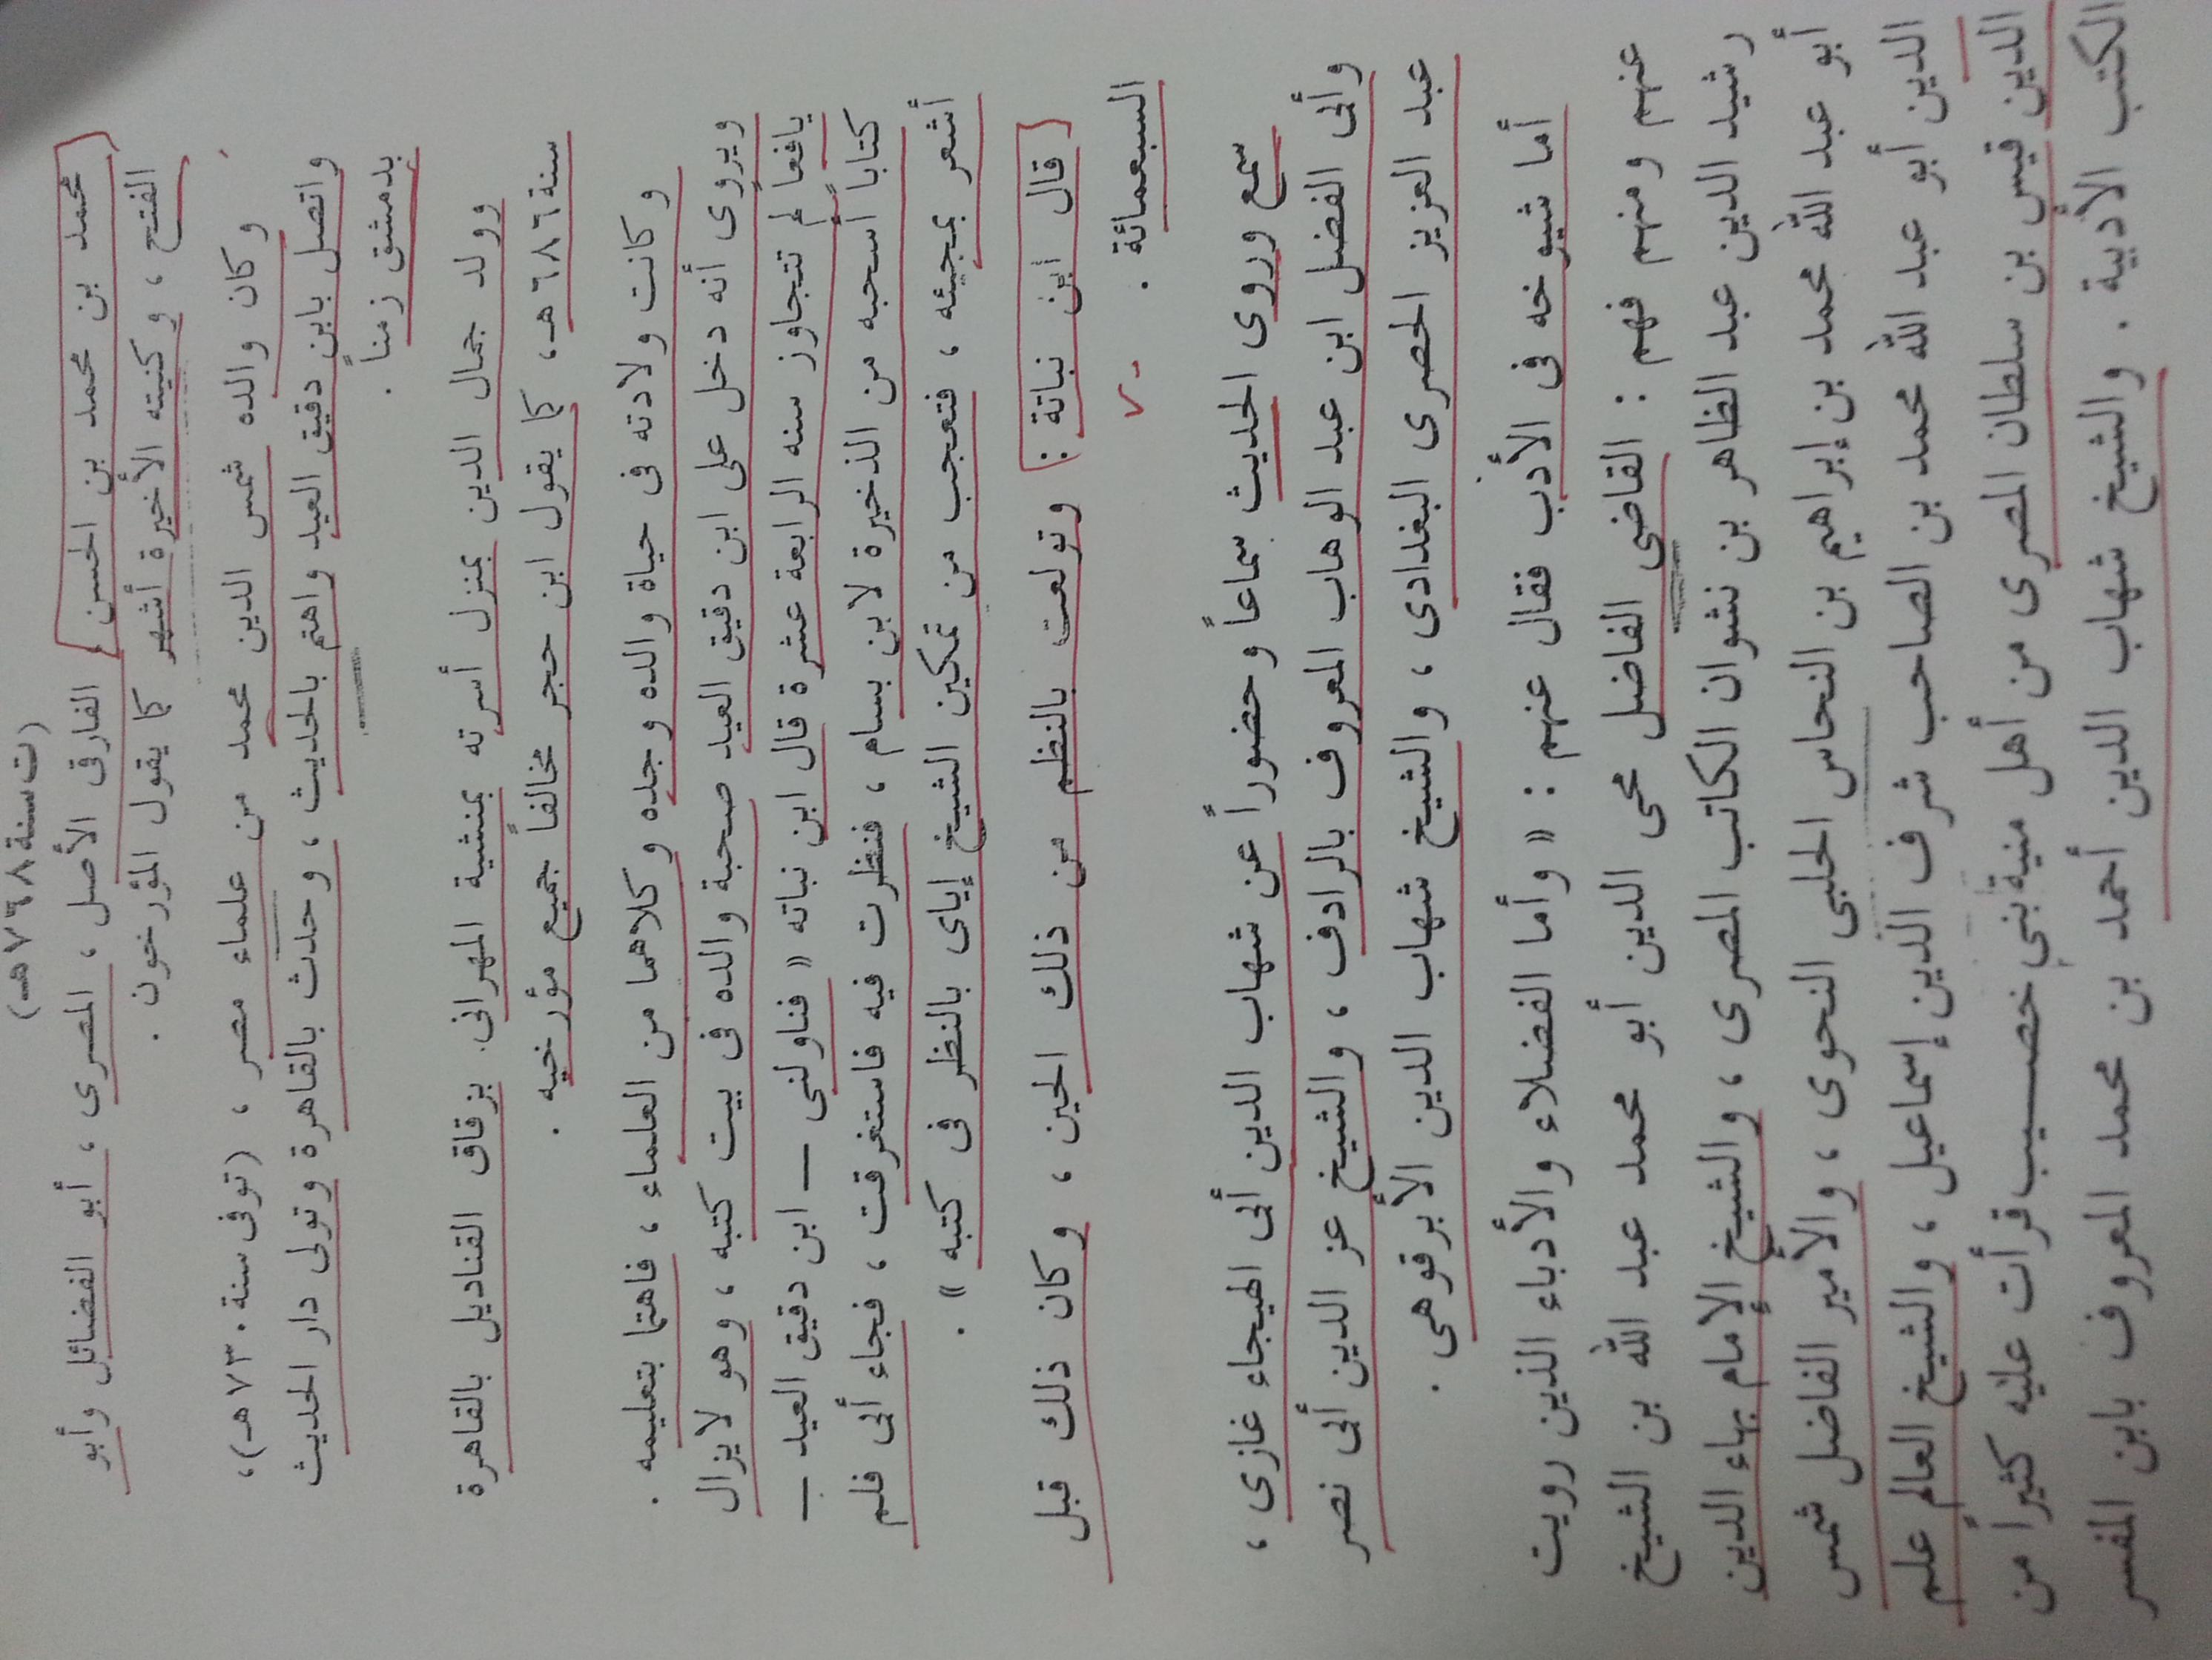 (ت سنة ٧٦٨ هـ)
محمد بن محمد بن الحسن ، الفارقى الأصل ، المصرى ، أبو الفضائل وأبو
الفتح ، وكنيته الأخيرة أشهر كما يقول المؤرخون .
وكان والده شمس الدين محمد من علماء مصر ، (توفى سنة ٧٣٠ هـ)،
واتصل بابن دقيق العيد واهتم بالحديث ، وحدث بالقاهرة وتولى دار الحديث
بدمشق زمناً .
وولد جمال الدين بمنزل أسرته بمنشية المهرانى. بزقاق القناديل بالقاهرة
سنة ٦٨٦ هـ، كما يقول ابن حجر مخالفاً جميع مؤرخيه .
وكانت ولادته فى حياة والده وجده وكلاهما من العلماء ، فاهتما بتعليمه .
ويروى أنه دخل على ابن دقيق العيد صحبة والده فى بيت كتبه ، وهو لايزال
يافعاً لم تتجاوز سنه الرابعة عشرة قال ابن نباته « فناولنى — ابن دقيق العيد —
كتاباً أسحبه من الذخيرة لابن بسام ، فنظرت فيه فاستغرقت ، فجاء أبى فلم
أشعر بمجيئه ، فتعجب من تمكين الشيخ إياى بالنظر فى كتبه » .
قال ابن نباتة : وتولعت بالنظم من ذلك الحين ، وكان ذلك قبل
السبعمائة . ٧٠
سمع وروى الحديث سماعاً وحضوراً عن شهاب الدين أبى الهيجاء غازى ،
وأبى الفضل ابن عبد الوهاب المعروف بالرادف ، والشيخ عز الدين أبى نصر
عبد العزيز الحصرى البغدادى ، والشيخ شهاب الدين الأبرقوهى .
أما شيوخه فى الأدب فقال عنهم : « وأما الفضلاء والأدباء الذين رويت
عنهم ومنهم فهم : القاضى الفاضل محى الدين أبو محمد عبد الله بن الشيخ
رشيد الدين عبد الظاهر بن نشوان الكاتب المصرى ، والشيخ الإمام بهاء الدين
أبو عبد الله محمد بن إبراهيم بن النحاس الحلبى النحوى ، والأمير الفاضل شمس
الدين أبو عبد الله محمد بن الصاحب شرف الدين إسماعيل ، والشيخ العالم علم
الدين قيس بن سلطان المصرى من أهل منية بنى خصيب قرأت عليه كثيراً من
الكتب الأدبية . والشيخ شهاب الدين أحمد بن محمد المعروف بابن المفسر